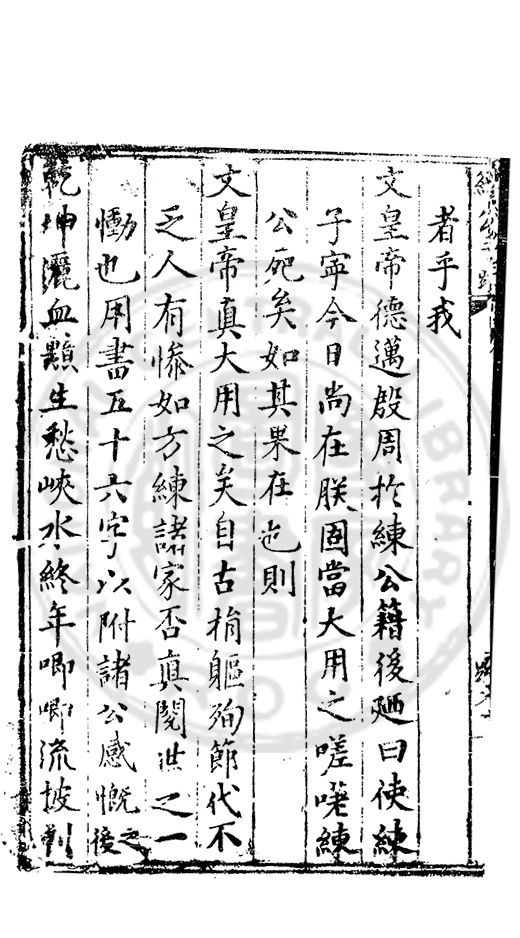 者乎我
文皇帝德邁殷周於練公籍後廼曰使練
子寧今日尚在朕固當大用之嗟嗟練
公死矣如其果在也則
文皇帝真大用之矣自古捐軀殉節代不
乏人有慘如方練諸家否真閱世之一
慟也用書五十六字以附諸公感慨之後
乾坤灑血顥生愁峽水終年唧唧流披